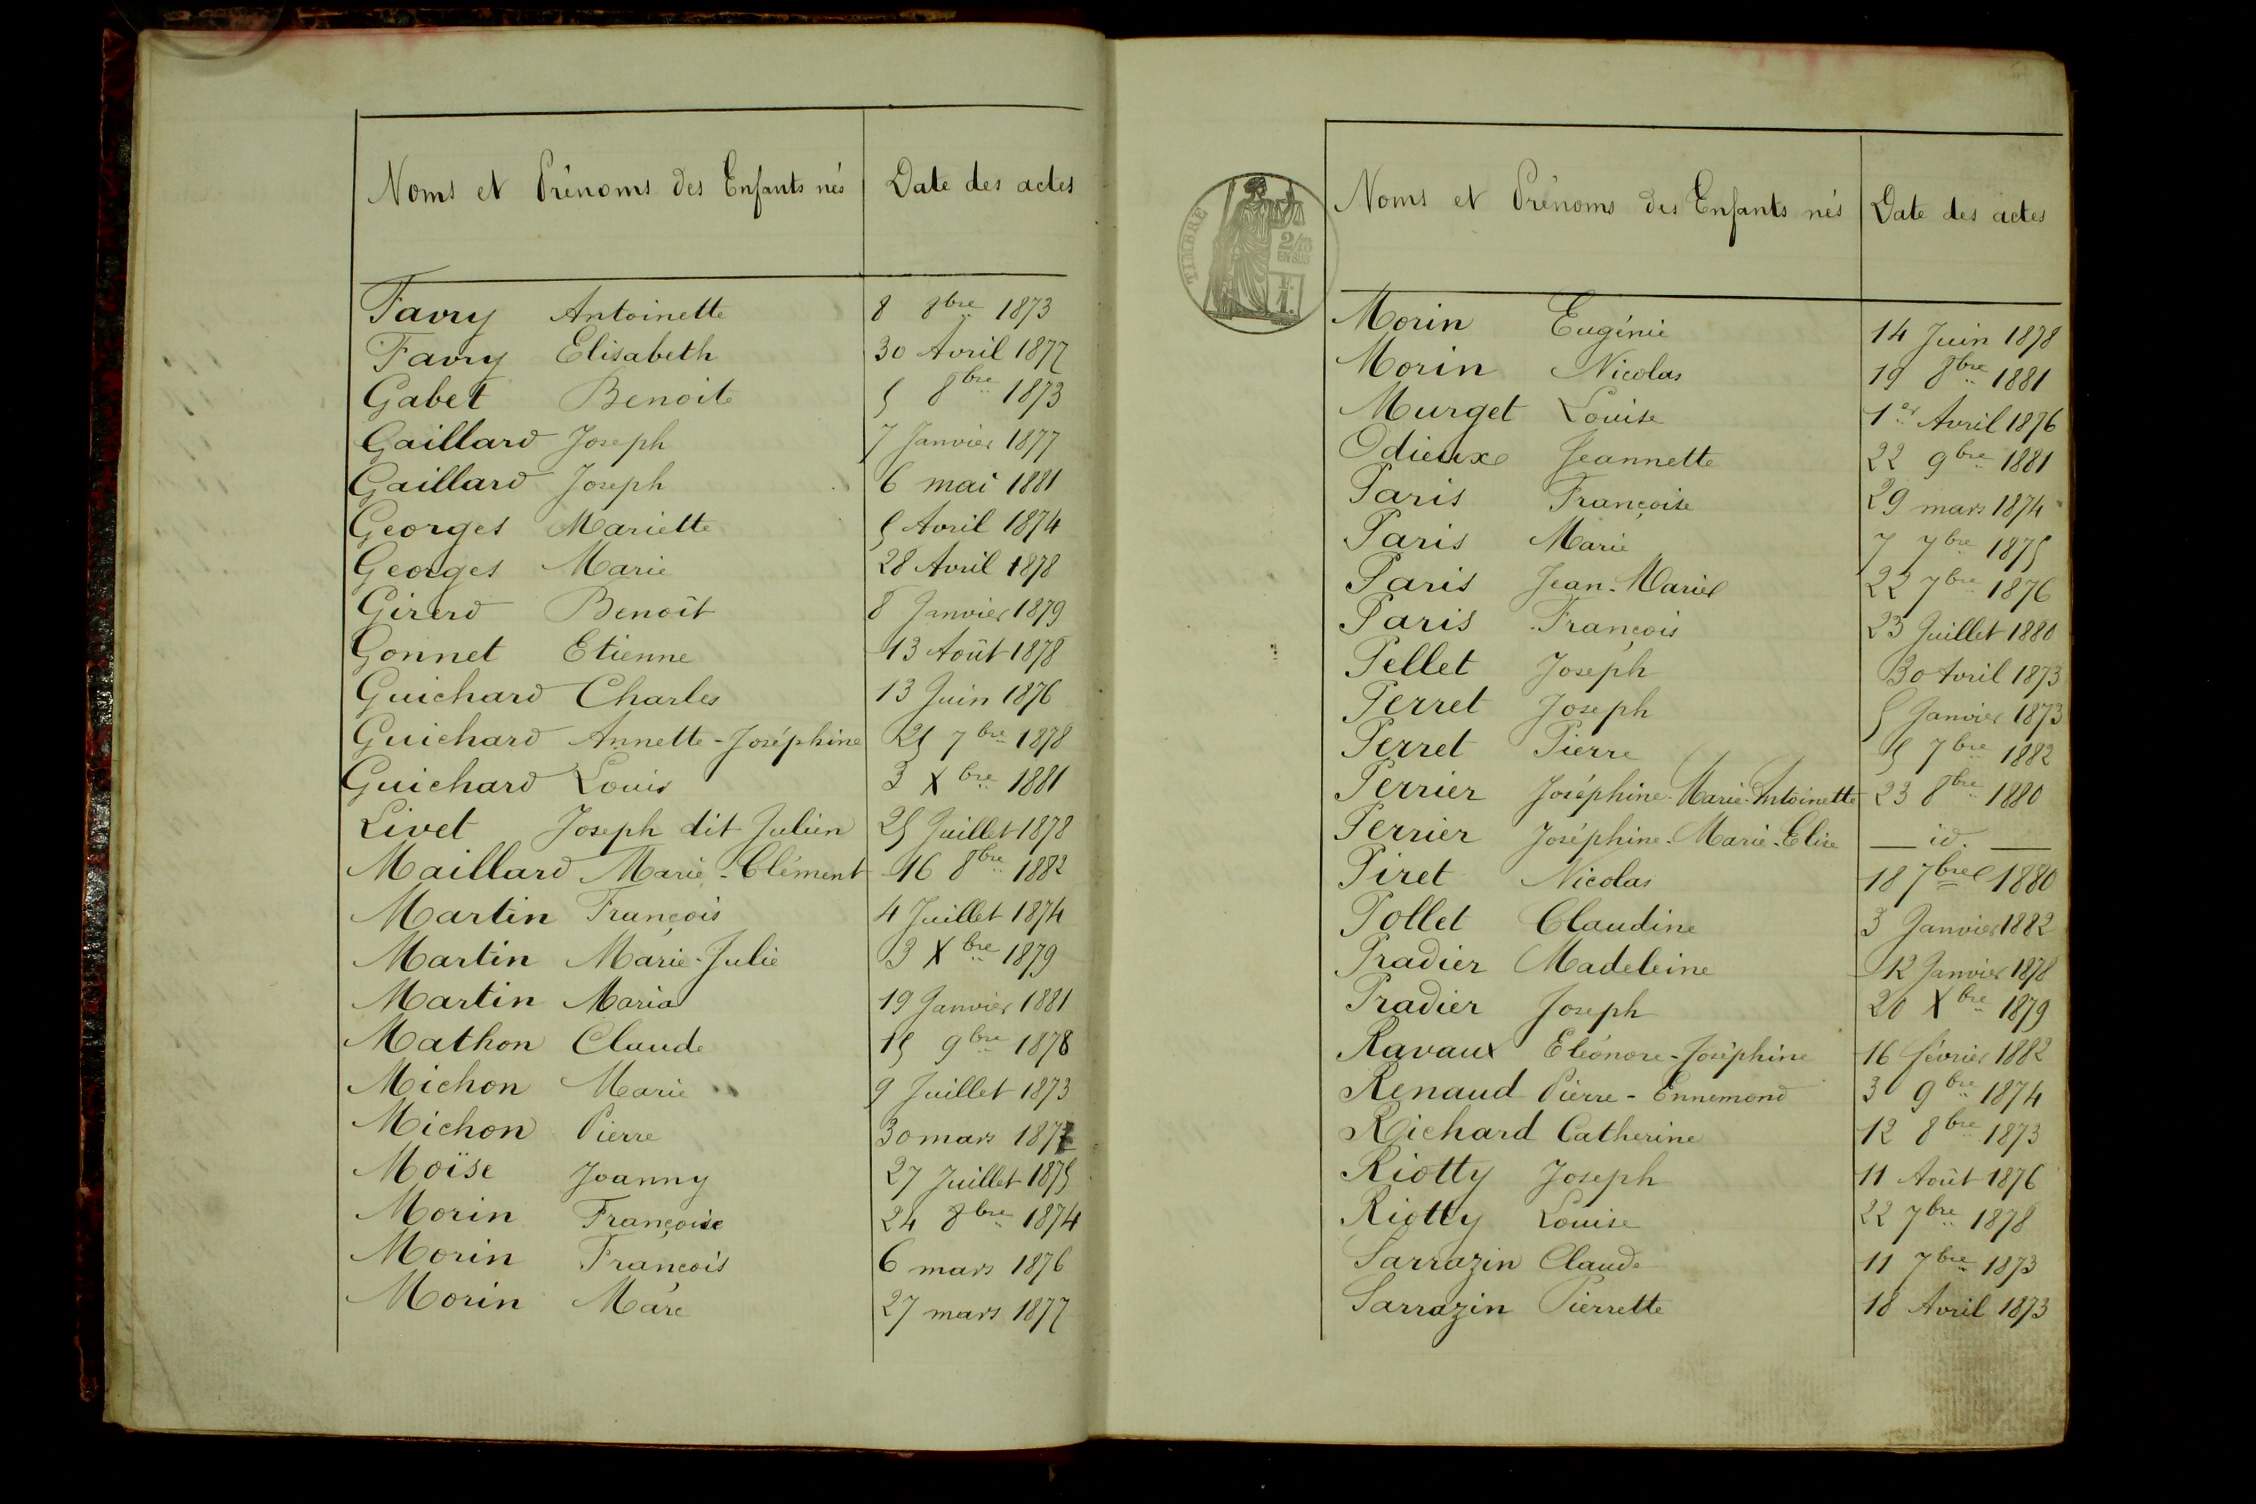 Noms et Prénoms des Enfants nés Date des actes
Favry Antoinette 8 8bre 1873
Favry Elisabeth 30 Avril 1877
Gabet Benoite 5 8bre 1873
Gaillard Joseph 7 Janvier 1877
Gaillard Joseph 6 mai 1881
Georges Mariette 5 Avril 1874
Georges Marie 28 Avril 1878
Girerd Benoît 8 Janvier 1879
Gonnet Etienne 13 Août 1878
Guichard Charles 13 Juin 1876
Guichard Annette-Joséphine 25 7bre 1878
Guichard Louis 3 Xbre 1881
Livet Joseph dit Julien 25 Juillet 1878
Maillard Marie-Clément 16 8bre 1882
Martin François 4 Juillet 1874
Martin Marie-Julie 3 Xbre 1879
Martin Maria 19 Janvier 1881
Mathon Claude 15 9bre 1878
Michon Marie 9 Juillet 1873
Michon Pierre 30 mars
Moïse Joanny 27 Juillet 1875
Morin Françoise 24 8bre 1874
Morin François 6 mars 1876
Morin Marc 27 mars 1877
TIMBRE
2/10
EN SUS
Noms et Prénoms des Enfants nés Date des actes
Morin Eugénie 14 Juin 1878
Morin Nicolas 19 8bre 1881
Murget Louise 1er Avril 1876
Odieuxe Jeannette 22 9bre 1881
Paris Françoise 29 mars 1874
Paris Marie 7 7bre 1875
Paris Jean-Marie 22 7bre 1876
Paris François 23 Juillet 1880
Pellet Joseph 30 Avril 1873
Perret Joseph 5 Janvier 1873
Perret Pierre 5 7bre 1882
Perrier Joséphine-Marie-Antoinette 23 8bre 1880
Perrier Joséphine-Marie-Elise — id. —
Piret Nicolas 18 7bre 1880
Pollet Claudine 3 Janvier 1882
Pradier Madeleine 12 Janvier 1878
Pradier Joseph 20 Xbre 1879
Ravaux Eléonore-Joséphine 16 février 1882
Renaud Pierre-Ennemond 3 9bre 1874
Richard Catherine 12 8bre 1873
Riotty Joseph 11 Août 1876
Riotty Louise 22 7bre 1878
Sarrazin Claude 11 7bre 1873
Sarrazin Pierrette 18 Avril 1873